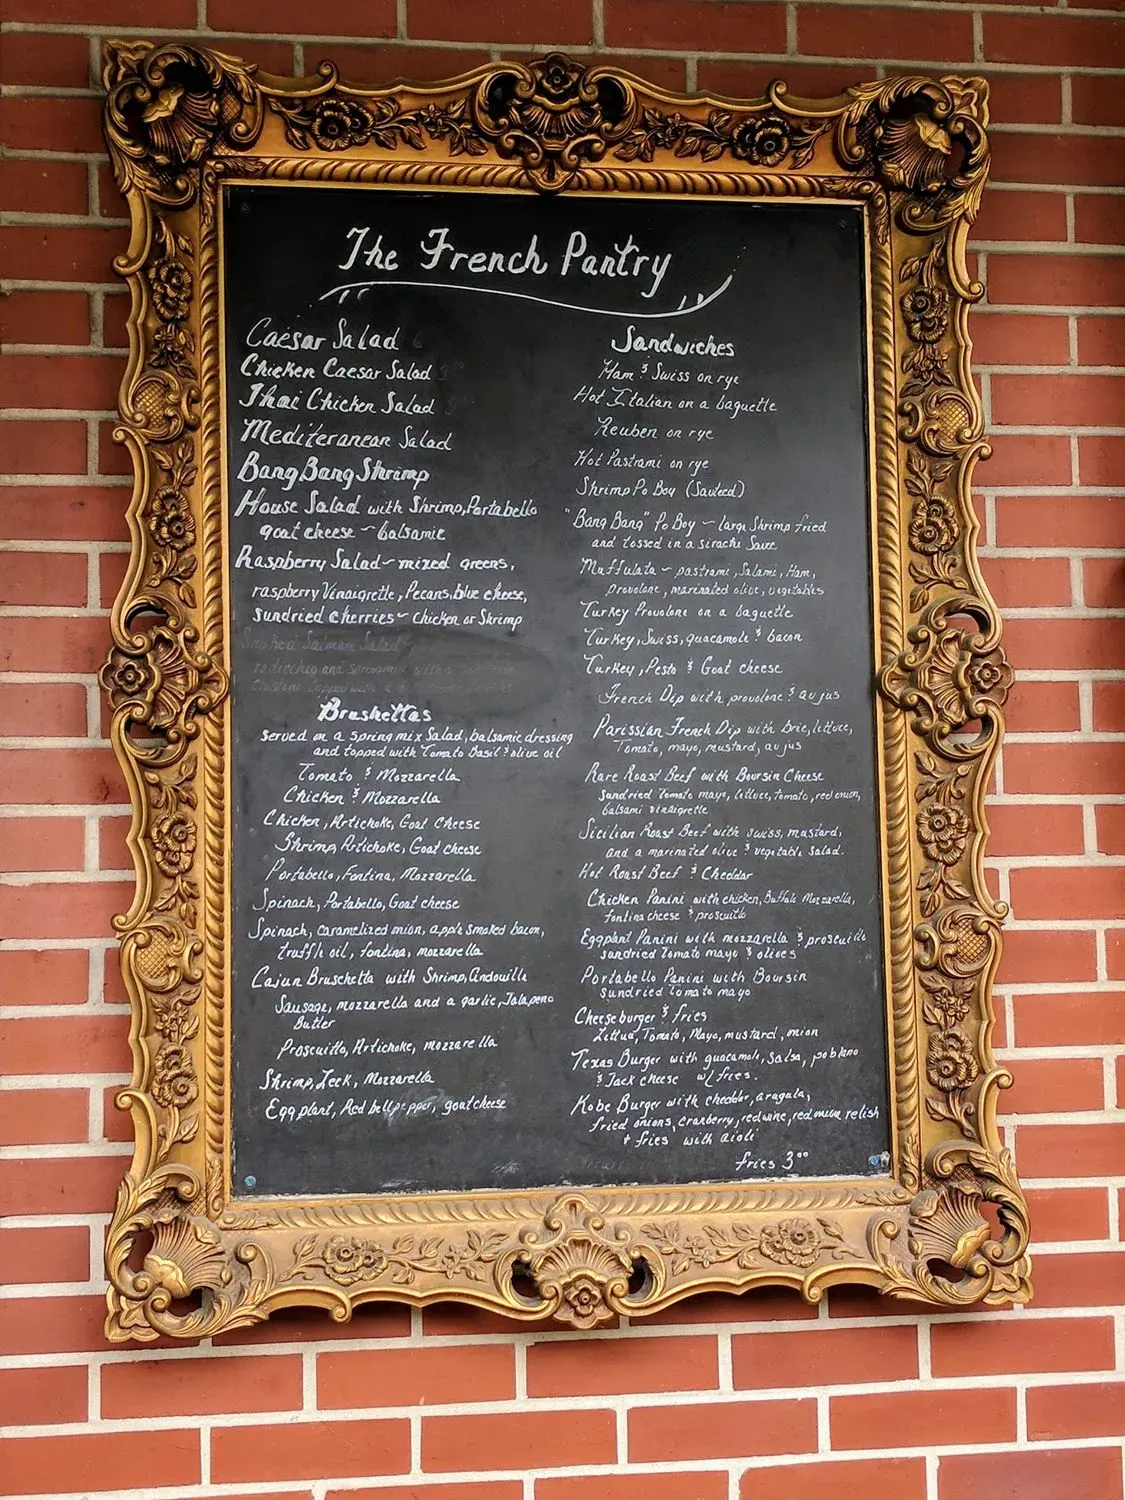 The French Pantry
Caesar Salad
Chicken Caesar Salad
Thai Chicken Salad
Mediteranean Salad
Bang Bang Shrimp
House Salad with Shrimp, Portabello
goat cheese ~ balsamic
Raspberry Salad ~ mixed greens,
raspberry Vinaigrette, Pecans, blue cheese,
sundried cherries ~ Chicken or Shrimp
Smoked Salmon Salad
radicchio and
Brushettas
served on a spring mix Salad, balsamic dressing
and topped with Tomato Basil & olive oil
Tomato & Mozzarella
Chicken & Mozzarella
Chicken, Artichoke, Goat Cheese
Shrimp, Artichoke, Goat cheese
Portabello, Fontina, Mozzarella
Spinach, Portabello, Goat cheese
Spinach, caramelized onion, apple smoked bacon,
truffle oil, fontina, mozzarella
Cajun Bruschetta with Shrimp, Andouille
Sausage, mozzarella and a garlic, Jalapeno
Butter
Proscuitto, Artichoke, mozzarella
Shrimp, Leek, Mozzarella
Eggplant, Red bell pepper, goat cheese
Sandwiches
Ham & Swiss on rye
Hot Italian on a baguette
Reuben on rye
Hot Pastrami on rye
Shrimp Po Boy (Sauteed)
"Bang Bang" Po Boy ~ large Shrimp fried
and tossed in a sirachi Sauce
Muffulata ~ pastrami, Salami, Ham,
provolone, marinated olive, vegetables
Turkey Provolone on a baguette
Turkey, Swiss, guacamole & bacon
Turkey, Pesto & Goat cheese
French Dip with provolone & au jus
Parissian French Dip with brie, lettuce,
Tomato, mayo, mustard, au jus
Rare Roast Beef with Boursin Cheese
sundried tomato mayo, lettuce, tomato, red onion,
balsami vinaigrette
Sicilian Roast Beef with swiss, mustard,
and a marinated olive & vegetable salad.
Hot Roast Beef & Cheddar
Chicken Panini with chicken, Buffalo Mozzarella,
fontina cheese & proscuitto
Eggplant Panini with mozzarella & proscuitto
sundried tomato mayo & olives
Portabello Panini with Boursin
sundried tomato mayo
Cheeseburger & fries
Lettuce, Tomato, Mayo, mustard, onion
Texas Burger with guacamole, salsa, poblano
& Jack cheese w/ fries.
Kobe Burger with cheddar, arugula,
fried onions, cranberry, redwine, red onion relish
+ fries with aioli
fries 3⁰⁰